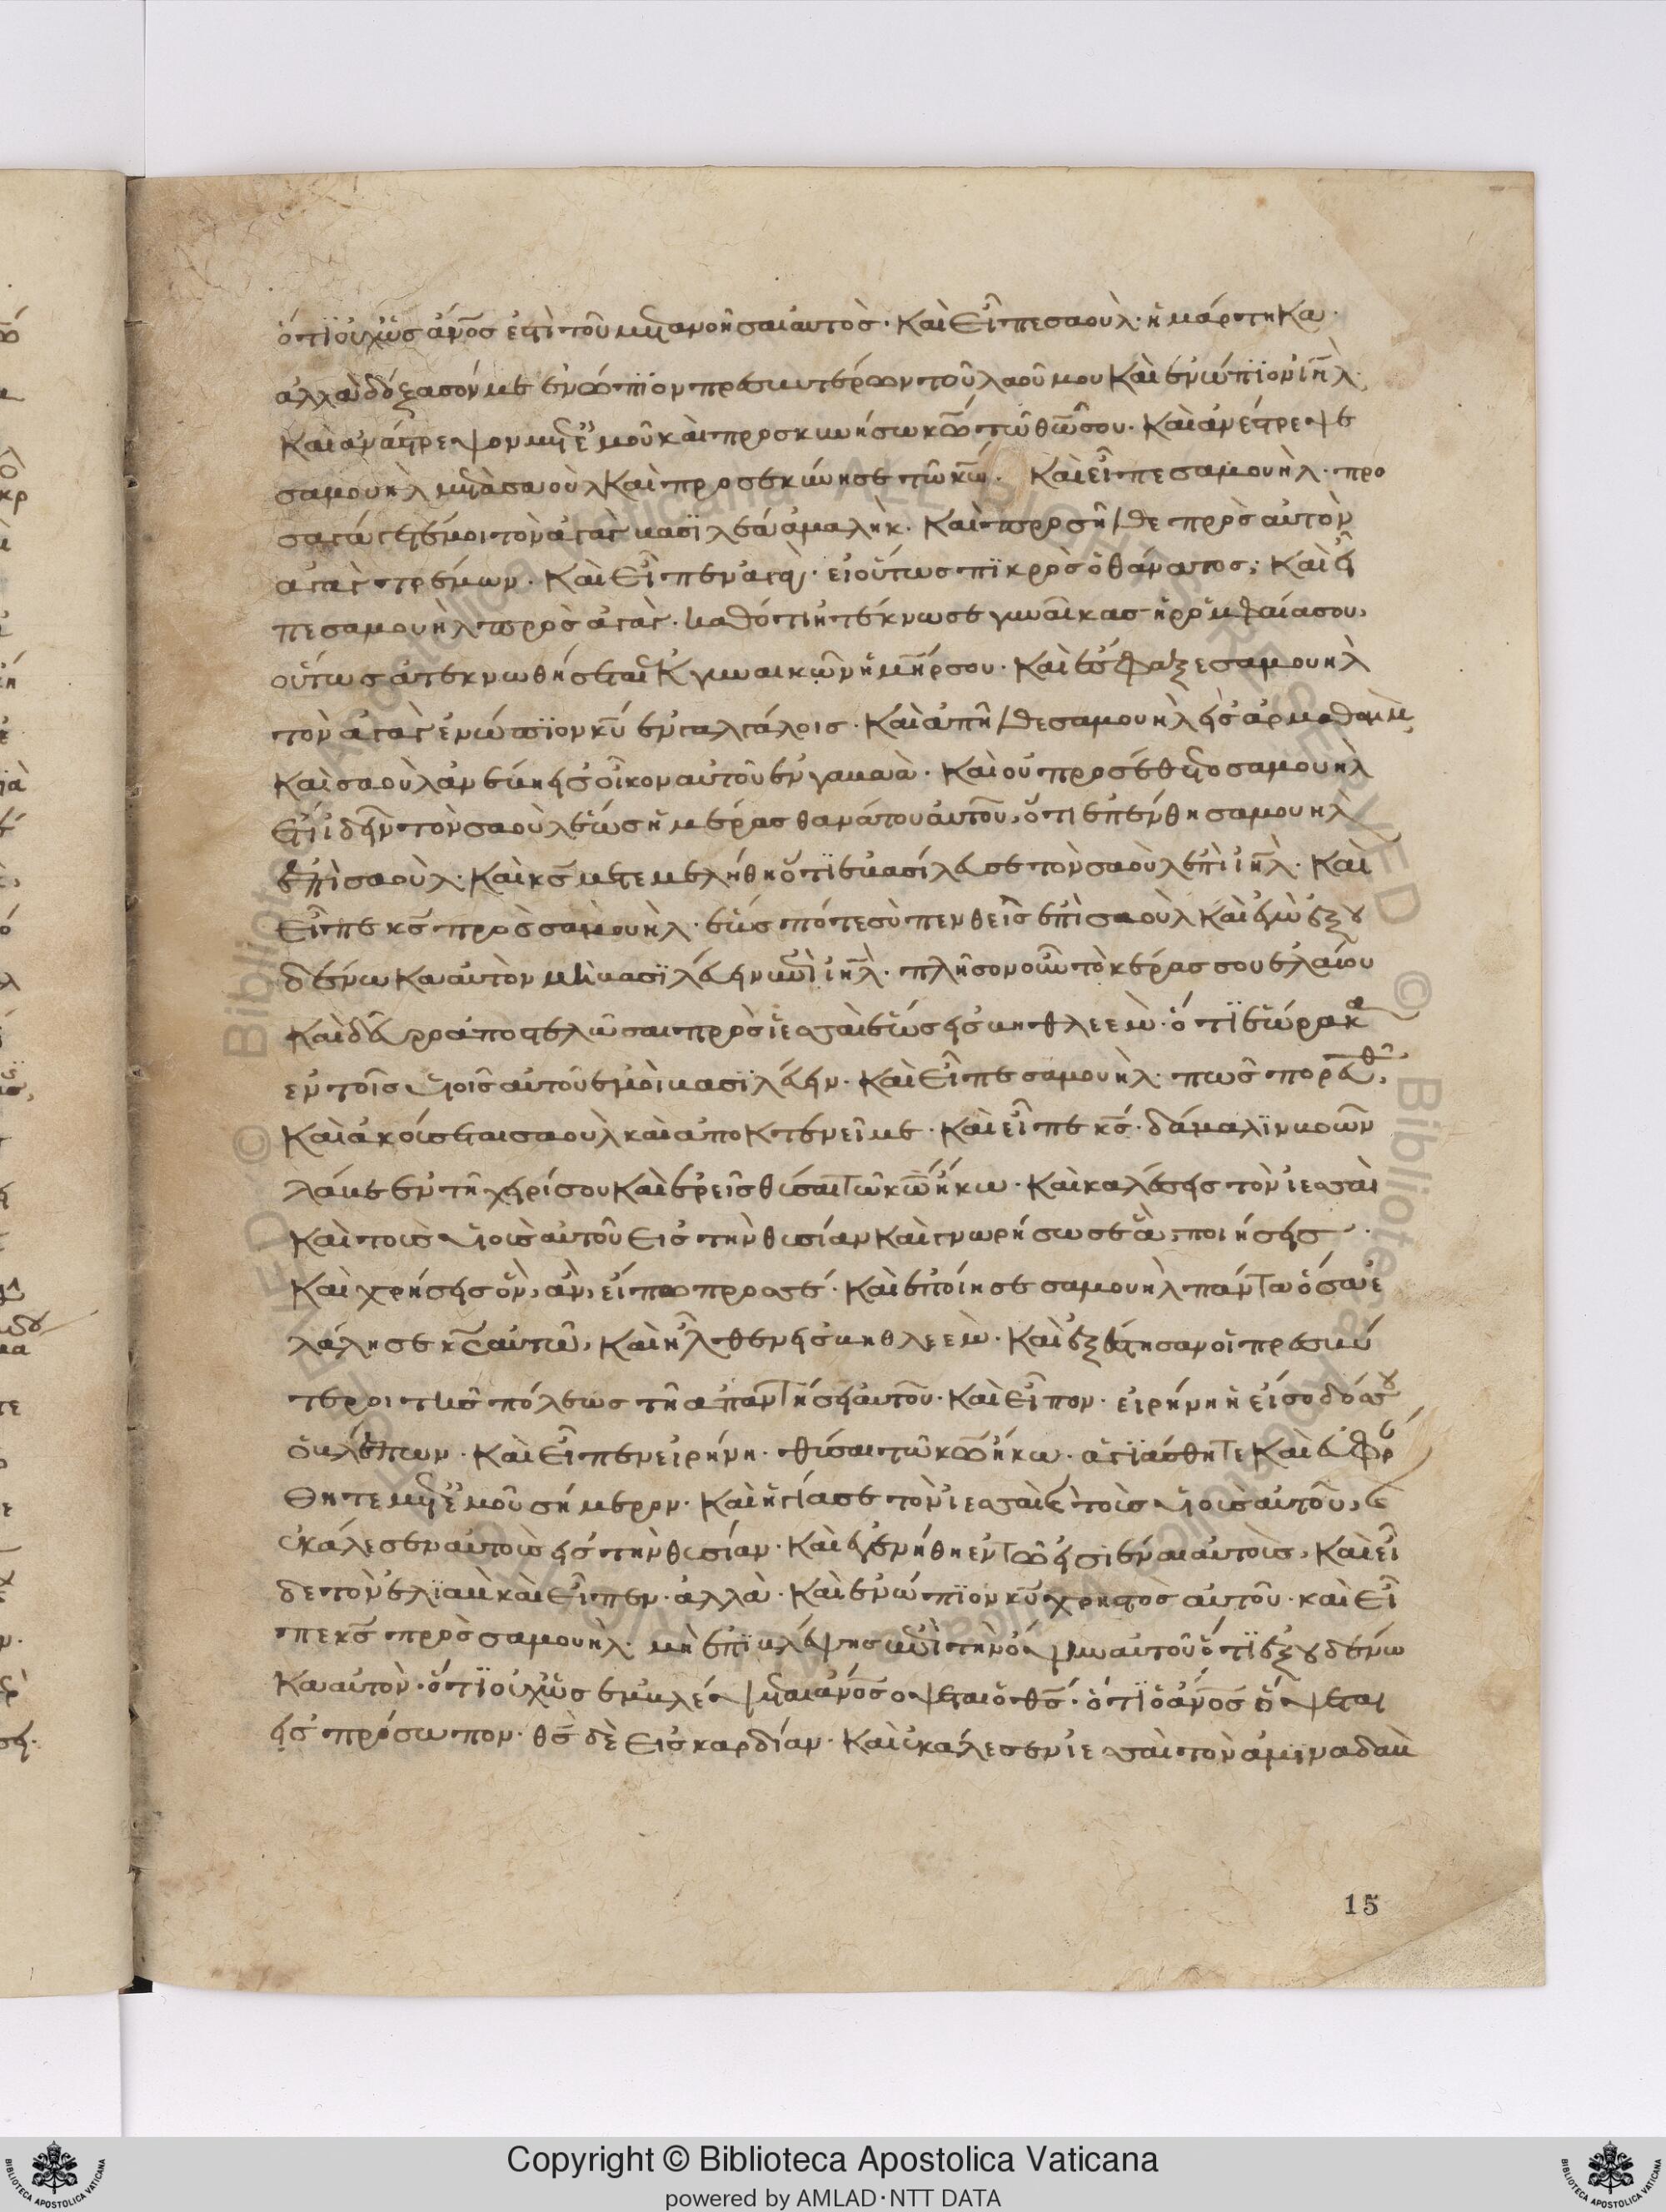 ὅτι οὐχ ὡς ἄνος ἐστὶ τοῦ μετανοῆσαι αὐτός. Καὶ εἶπε σαοὺλ. ἡμάρτηκα.
ἀλλὰ δόξασόν με ἐνώπϊον πρεσβυτέρων τοῦ λαοῦ μου καὶ ἐνώπϊον ἰηλ.
Καὶ ἀνάστρεψον μετ' ἐμοῦ καὶ προσκυνήσω κω τῶ θω σου. Καὶ ἀνέστρεψε
σαμουὴλ μετὰ σαοὺλ καὶ προσεκύνησε τῶ κω. Καὶ εἶπε σαμουὴλ. προ
σαγάγετέ μοι τὸν ἀγὰγ βασϊλέα ἀμαλὴκ. Καὶ προσῆλθε πρὸς αὐτὸν
ἀγὰγ τρέμων. Καὶ εἶπεν ἀγὰγ. εἰ οὕτως πϊκρὸς ὁ θάνατος; Καὶ εἶ
πε σαμουὴλ πρὸς ἀγὰγ. καθότι ἠτέκνωσε γυναῖκας ἡ ῥομφαία σου,
οὕτως ἀτεκνωθήσεται ἐκ γυναικῶν ἡ μηρ σου. Καὶ ἔσφαξε σαμουὴλ
τὸν ἀγὰγ ἐνώπϊον κυ ἐν γαλγάλοις. Καὶ ἀπῆλθε σαμουὴλ εἰς ἀρμαθαὶμ,
Καὶ σαοὺλ ἀνέβη εἰς οἶκον αὐτοῦ ἐν γαβαὰ. Καὶ οὐ προσέθετο σαμουὴλ
ἔτι ἰδεῖν τὸν σαοὺλ ἕως ἡμέρας θανάτου αὐτοῦ, ὅτι ἐπένθη σαμουὴλ
ἐπὶ σαοὺλ. Καὶ κς μετεμελήθη ὅτϊ ἐβασίλευσε τὸν σαοὺλ ἐπὶ ἰηλ. Καὶ
εἶπε κς πρὸς σαμουὴλ. ἕως πότε σὺ πενθεῖς ἐπὶ σαοὺλ καὶ ἐγὼ ἐξου
δένωκα αὐτὸν μὴ βασϊλεύειν ἐπὶ ἰηλ. πλῆσον οὖν τὸ κέρας σου ἐλαίου
Καὶ δεῦρο ἀποστελῶ σαι πρὸς ἰεσσαὶ ἕως εἰς βηθλεεὲμ. ὅτϊ ἑώρακα
ἐν τοῖς υἱοῖς αὐτοῦ ἐμοὶ βασϊλεύειν. Καὶ εἶπε σαμουὴλ. πῶς πορευθῶ,
Καὶ ἀκούσεται σαοὺλ καὶ ἀποκτενεῖ με. Καὶ εἶπε κς. δάμαλϊν βοῶν
λάβε ἐν τῆ χειρί σου καὶ ἐρεῖς θῦσαι τῶ κω ἥκω. Καὶ καλέσεις τὸν ἰεσσαὶ
Καὶ τοὺς υἱοὺς αὐτοῦ εἰς τὴν θυσίαν καὶ γνωρήσω σε ἃ, ποιήσεις.
Καὶ χρήσεις ὃν, ἂν, εἴπω πρός σέ. Καὶ ἐποίησε σαμουὴλ πάντα ὅσα ἐ
λάλησε κς αὐτῶ, Καὶ ἦλθεν εἰς βηθλεεὲμ. Καὶ ἐξέστησαν οἱ πρεσβύ
τεροι τῆς πόλεως τῆ ἀπαντήσει αὐτοῦ. Καὶ εἶπον. εἰρήνη ἡ εἴσοδός σου
ὁ βλέπων. Καὶ εἶπεν εἰρήνη. θῦσαι τῶ κω ἥκω. ἁγϊάσθητε καὶ εὐφράν
θητε μετ' ἐμοῦ σήμερον. Καὶ ἡγίασε τὸν ἰεσσαὶ καὶ τοὺς υἱοὺς αὐτοῦ, καὶ
ἐκάλεσεν αὐτοὺς εἰς τὴν θυσίαν. Καὶ ἐγενήθη ἐν τῶ εἰσιέναι αὐτοὺς, Καὶ εἶ
δε τὸν ἐλϊαὰβ καὶ εἶπεν. ἀλλὰ. Καὶ ἐνώπϊον κυ χρηστὸς αὐτοῦ. καὶ εἶ
πε κς πρὸς σαμουὴλ. μὴ ἐπϊβλέψης ἐπὶ τὴν ὄψιν αὐτοῦ ὅτϊ ἐξουδένω
κα αὐτὸν. ὅτϊ οὐχ ὡς ἐμβλέψεται ἄνος ὄψεται ὁ θς. ὅτϊ ὁ ἄνος ὄψεται
εἰς πρόσωπον. θς δὲ εἰς καρδίαν. Καὶ ἐκάλεσεν ἰεσσαὶ τὸν ἀμϊναδαὰβ
15
Copyright © Biblioteca Apostolica Vaticana
powered by AMLAD·NTT DATA